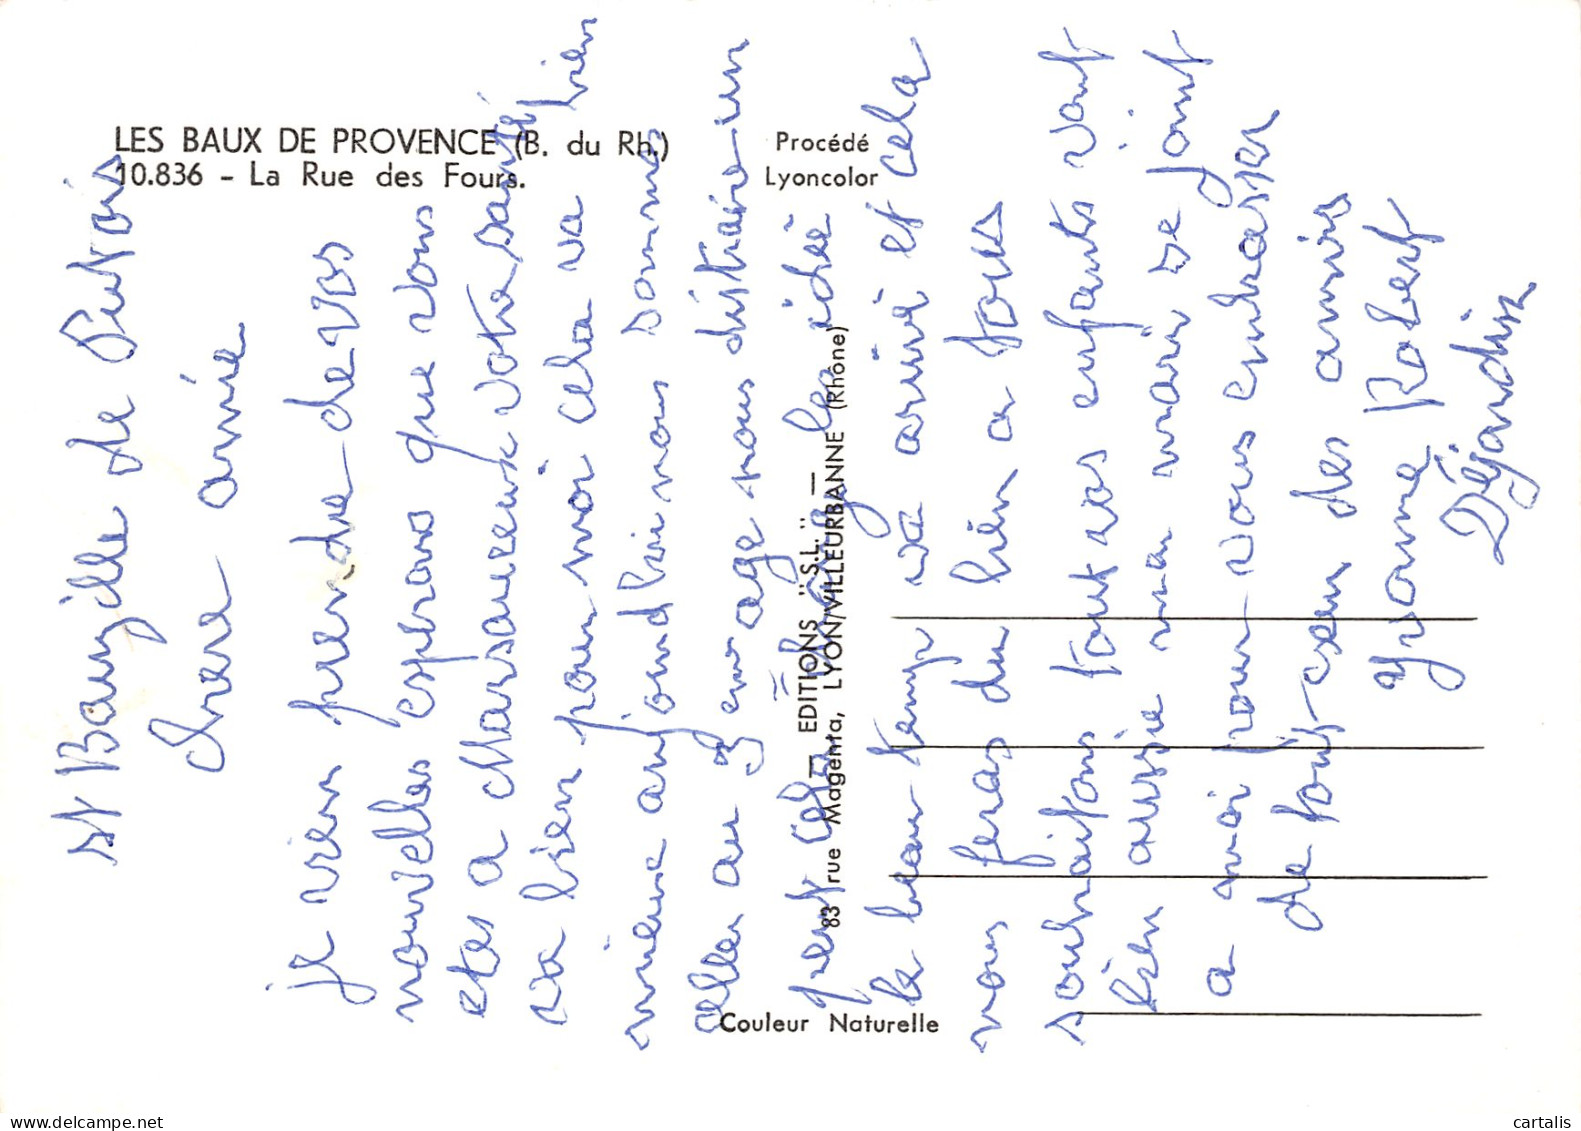 LES BAUX DE PROVENCE (B. du Rh.)
10.836 - La Rue des Fours.
Procédé
Lyoncolor
EDITIONS "S.L."
83 rue Magenta, LYON/VILLEURBANNE (Rhône)
Couleur Naturelle
St Bauzille de Putois
Chere amie
je vien prendre de vos
nouvelles esperons que vous
etes a votre santé
va bien pour moi cela va bien
mieux aujourd'hui nous sommes
aller au nous distraire un
peut cela
le beau temp va arrivé et cela
nous feras du bien a tous
souhaitons tout vos enfants vont
bien aussie mon mari se joint
a moi pour vous embrasser
de tout coeur des amis
Yvonne Robert
Déjardin
cartalis